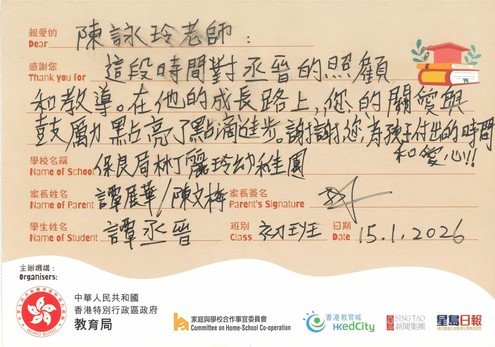 親愛的 陳詠玲老師：
Dear
感謝您 這段時間對丞晉的照顧
Thank you for
和教導。在他的成長路上，您的關愛與
鼓勵點亮了點滴進步。謝謝您為孩子付出的時間
和愛心!!
學校名稱 保良局林丁麗玲幼稚園
Name of School
家長姓名 譚展華/陳文梅 家長簽名
Name of Parent Parent's Signature
學生姓名 譚丞晉 班別 初班 日期 15.1.2026
Name of Student Class Date
主辦機構：
Organisers:
中華人民共和國
香港特別行政區政府
教育局
家庭與學校合作事宜委員會
Committee on Home-School Co-operation
香港教育城
HKedCity
星島 SING TAO
新聞集團
星島日報